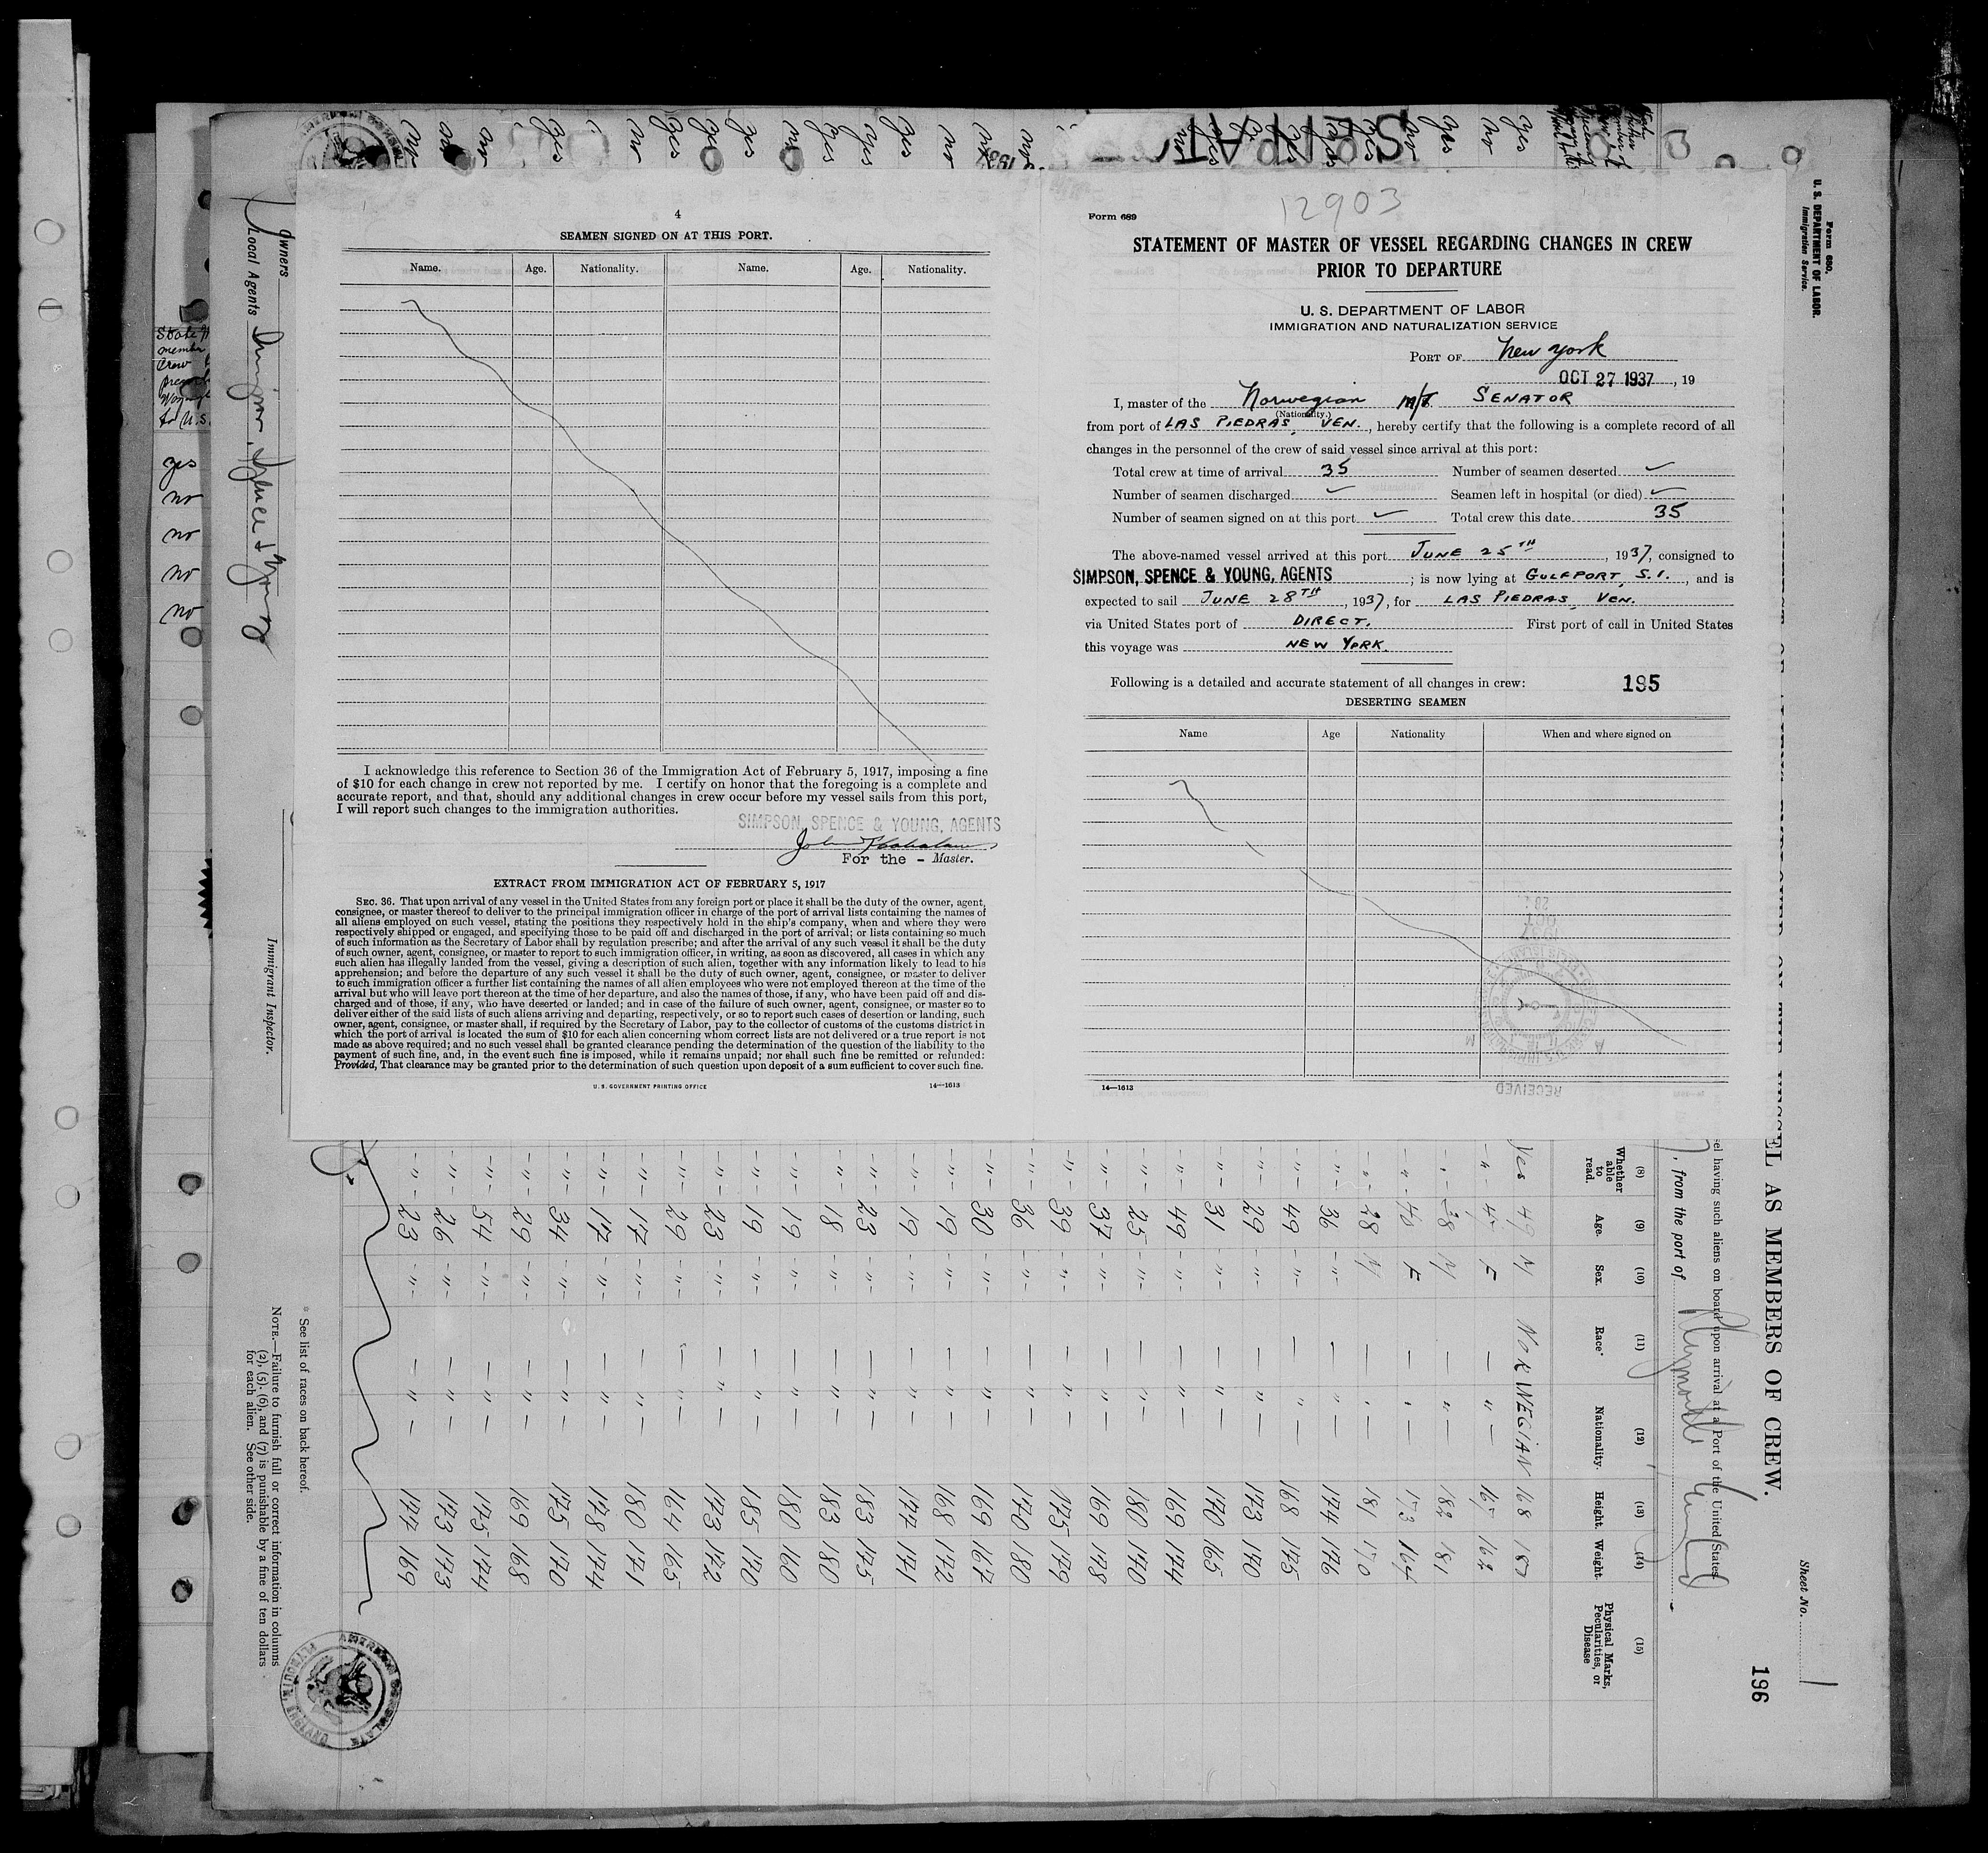 4
SEAMEN SIGNED ON AT THIS PORT.
Name. Age. Nationality. Name. Age. Nationality.
I acknowledge this reference to Section 36 of the Immigration Act of February 5, 1917, imposing a fine
of $10 for each change in crew not reported by me. I certify on honor that the foregoing is a complete and
accurate report, and that, should any additional changes in crew occur before my vessel sails from this port,
I will report such changes to the immigration authorities.
SIMPSON, SPENCE & YOUNG, AGENTS
John
For the - Master.
EXTRACT FROM IMMIGRATION ACT OF FEBRUARY 5, 1917
SEC. 36. That upon arrival of any vessel in the United States from any foreign port or place it shall be the duty of the owner, agent,
consignee, or master thereof to deliver to the principal immigration officer in charge of the port of arrival lists containing the names of
all aliens employed on such vessel, stating the positions they respectively hold in the ship's company, when and where they were
respectively shipped or engaged, and specifying those to be paid off and discharged in the port of arrival; or lists containing so much
of such information as the Secretary of Labor shall by regulation prescribe; and after the arrival of any such vessel it shall be the duty
of such owner, agent, consignee, or master to report to such immigration officer, in writing, as soon as discovered, all cases in which any
such alien has illegally landed from the vessel, giving a description of such alien, together with any information likely to lead to his
apprehension; and before the departure of any such vessel it shall be the duty of such owner, agent, consignee, or master to deliver
to such immigration officer a further list containing the names of all alien employees who were not employed thereon at the time of the
arrival but who will leave port thereon at the time of her departure, and also the names of those, if any, who have been paid off and dis-
charged and of those, if any, who have deserted or landed; and in case of the failure of such owner, agent, consignee, or master so to
deliver either of the said lists of such aliens arriving and departing, respectively, or so to report such cases of desertion or landing, such
owner, agent, consignee, or master shall, if required by the Secretary of Labor, pay to the collector of customs of the customs district in
which the port of arrival is located the sum of $10 for each alien concerning whom correct lists are not delivered or a true report is not
made as above required; and no such vessel shall be granted clearance pending the determination of the question of the liability to the
payment of such fine, and, in the event such fine is imposed, while it remains unpaid; nor shall such fine be remitted or refunded:
Provided, That clearance may be granted prior to the determination of such question upon deposit of a sum sufficient to cover such fine.
U. S. GOVERNMENT PRINTING OFFICE 14—1613
Form 689
12903
STATEMENT OF MASTER OF VESSEL REGARDING CHANGES IN CREW
PRIOR TO DEPARTURE
U. S. DEPARTMENT OF LABOR
IMMIGRATION AND NATURALIZATION SERVICE
PORT OF New York
OCT 27 1937, 19
I, master of the Norwegian M/T. SENATOR
(Nationality.)
from port of LAS PIEDRAS, VEN., hereby certify that the following is a complete record of all
changes in the personnel of the crew of said vessel since arrival at this port:
Total crew at time of arrival 35 Number of seamen deserted ✓
Number of seamen discharged ✓ Seamen left in hospital (or died) ✓
Number of seamen signed on at this port ✓ Total crew this date 35
The above-named vessel arrived at this port JUNE 25TH, 1937, consigned to
SIMPSON, SPENCE & YOUNG, AGENTS; is now lying at GULFPORT, S.I., and is
expected to sail JUNE 28TH, 1937, for LAS PIEDRAS, VEN.
via United States port of DIRECT. First port of call in United States
this voyage was NEW YORK.
Following is a detailed and accurate statement of all changes in crew: 195
DESERTING SEAMEN
Name Age Nationality When and where signed on
14—1613
RECEIVED
Form 680.
U. S. DEPARTMENT OF LABOR.
Immigration Service.
Sheet No. 1
196
EL AS MEMBERS OF CREW.
el having such aliens on board upon arrival at a Port of the United States
, from the port of Plymouth England
(8) (9) (10) (11) (12) (13) (14) (15)
Whether able to read. Age. Sex. Race* Nationality. Height. Weight. Physical Marks, Peculiarities, or Disease
Yes 49 M NORWEGIAN 168 187
-"- 47 F -"- 167 162
-"- 38 M -"- 182 181
-"- 40 F -"- 173 164
-"- 28 M -"- 181 170
-"- 36 -"- -"- 174 176
-"- 49 -"- -"- 168 175
-"- 29 -"- -"- 173 170
-"- 31 -"- -"- 170 165
-"- 49 -"- -"- 169 174
-"- 25 -"- -"- 180 170
-"- 37 -"- -"- 169 178
-"- 39 -"- -"- 175 179
-"- 36 -"- -"- 170 180
-"- 30 -"- -"- 169 167
-"- 19 -"- -"- 168 172
-"- 19 -"- -"- 177 171
-"- 23 -"- -"- 183 175
-"- 18 -"- -"- 183 180
-"- 19 -"- -"- 180 160
-"- 19 -"- -"- 185 170
-"- 23 -"- -"- 173 172
-"- 29 -"- -"- 164 165
-"- 17 -"- -"- 180 171
-"- 17 -"- -"- 178 174
-"- 34 -"- -"- 175 170
-"- 29 -"- -"- 169 168
-"- 54 -"- -"- 175 174
-"- 26 -"- -"- 173 173
-"- 23 -"- -"- 177 169
* See list of races on back hereof.
NOTE.—Failure to furnish full or correct information in columns
(2), (5), (6), and (7) is punishable by a fine of ten dollars
for each alien. See other side.
Immigrant Inspector.
Owners
Local Agents Simpson, Spence & Young
AMERICAN CONSULATE
PLYMOUTH ENGLAND
yes
no
no
no
no